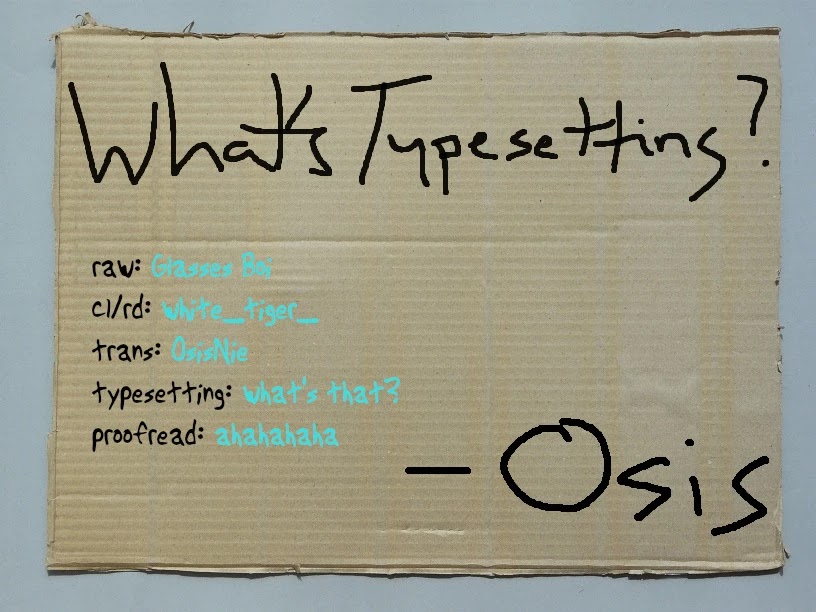 What's Typesetting?
raw: Glasses Boi
cl/rd: white_tiger_
trans: OsisNie
typesetting: what's that?
proofread: ahahahaha
- Osis